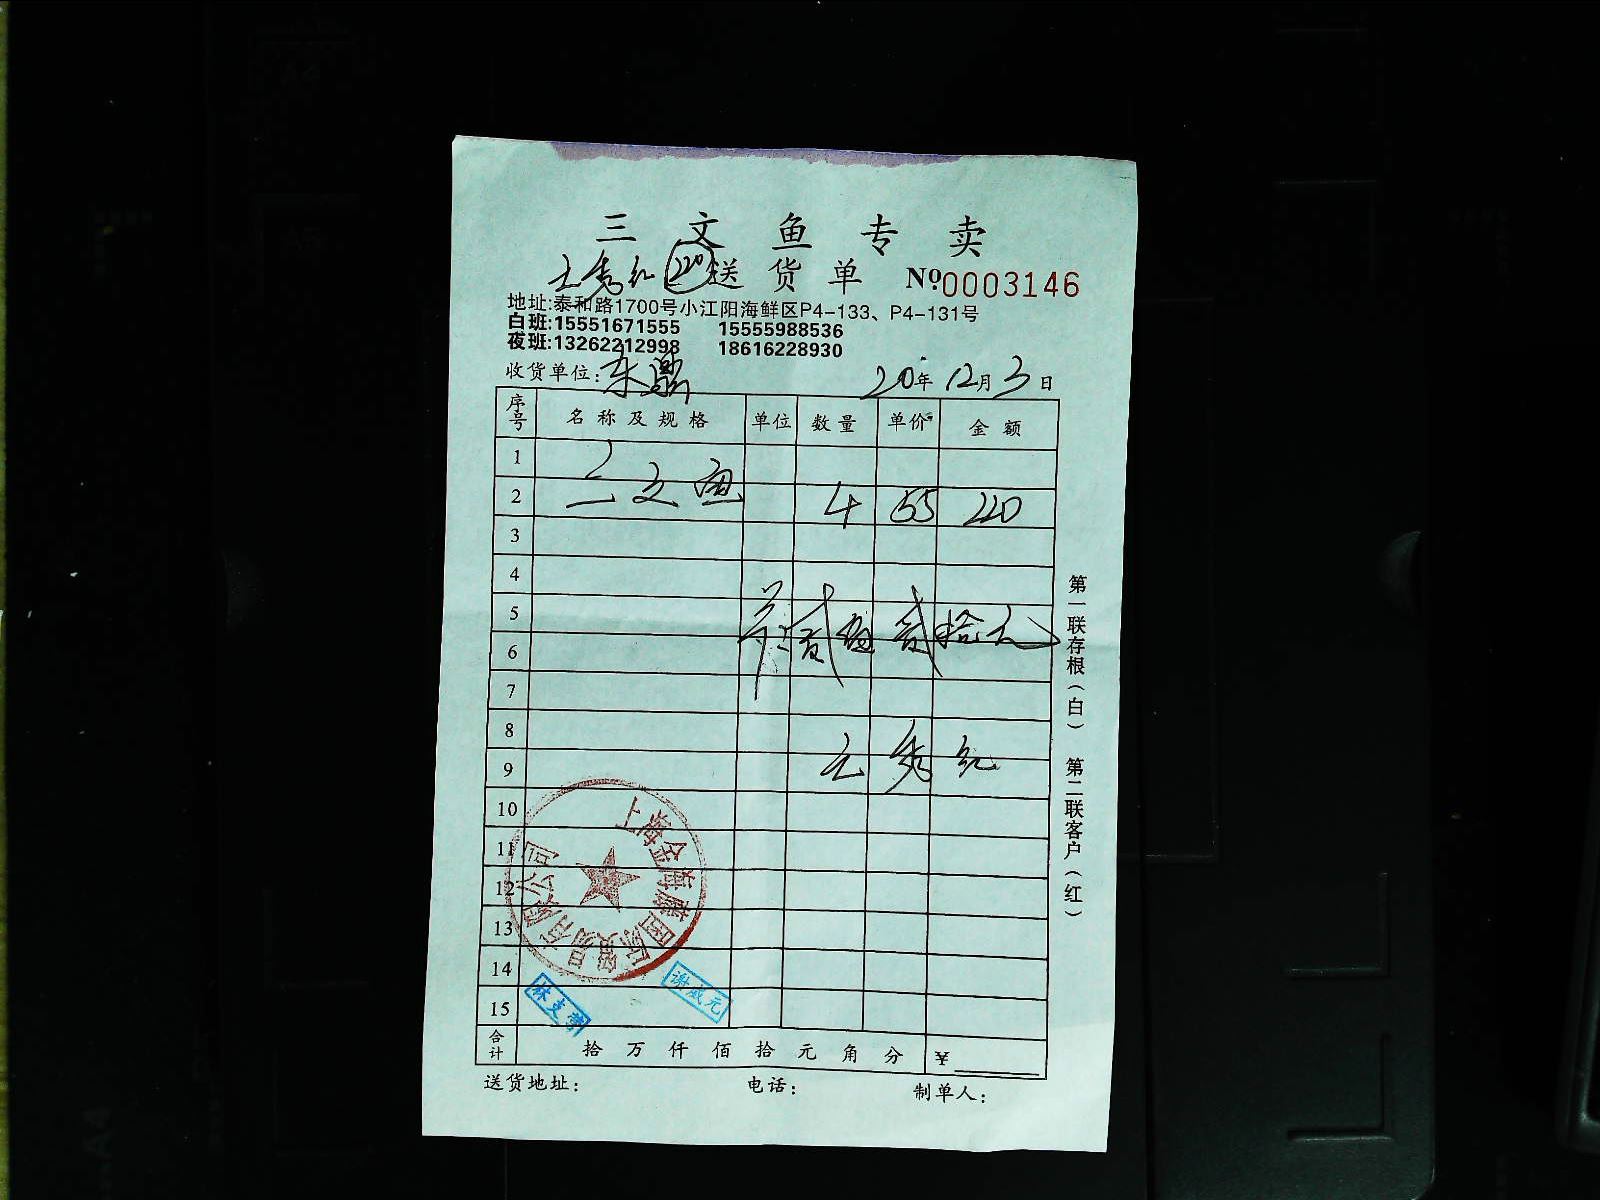 三文鱼专卖
送货单 №0003146
地址:泰和路1700号小江阳海鲜区P4-133、P4-131号
白班:15551671555 15555988536
夜班:13262212998 18616228930
收货单位: 20年12月3日
序号 名称及规格 单位 数量 单价 金额
1
2 三文鱼 4 55 220
3
4
5
6
贰佰贰拾元
7
8
9
10
11
12
13
14
15
上海金海薇国际贸易有限公司
林支营
谢成元
合计 拾万仟佰拾元角分 ¥
送货地址: 电话: 制单人:
第一联存根(白) 第二联客户(红)